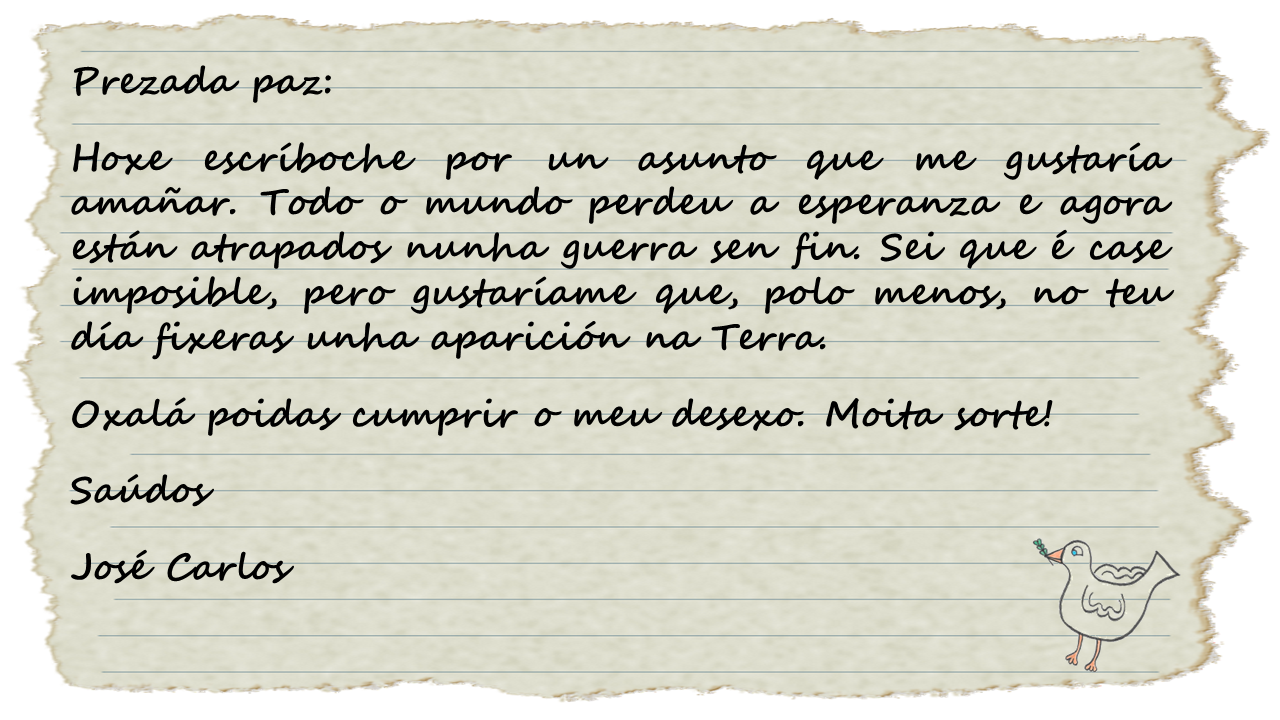 Prezada paz:
Hoxe escríboche por un asunto que me gustaría
amañar. Todo o mundo perdeu a esperanza e agora
están atrapados nunha guerra sen fin. Sei que é case
imposible, pero gustaríame que, polo menos, no teu
día fixeras unha aparición na Terra.
Oxalá poidas cumprir o meu desexo. Moita sorte!
Saúdos
José Carlos